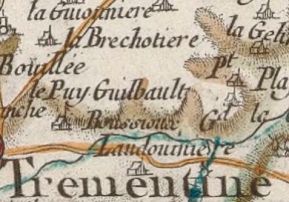 la Guioniniere
la Brechotiere
la Geli
Boullée
Pt
Pla
le Puy Guilbault
nche
Gd
le
Roussioux
Landouiniere
Trementine